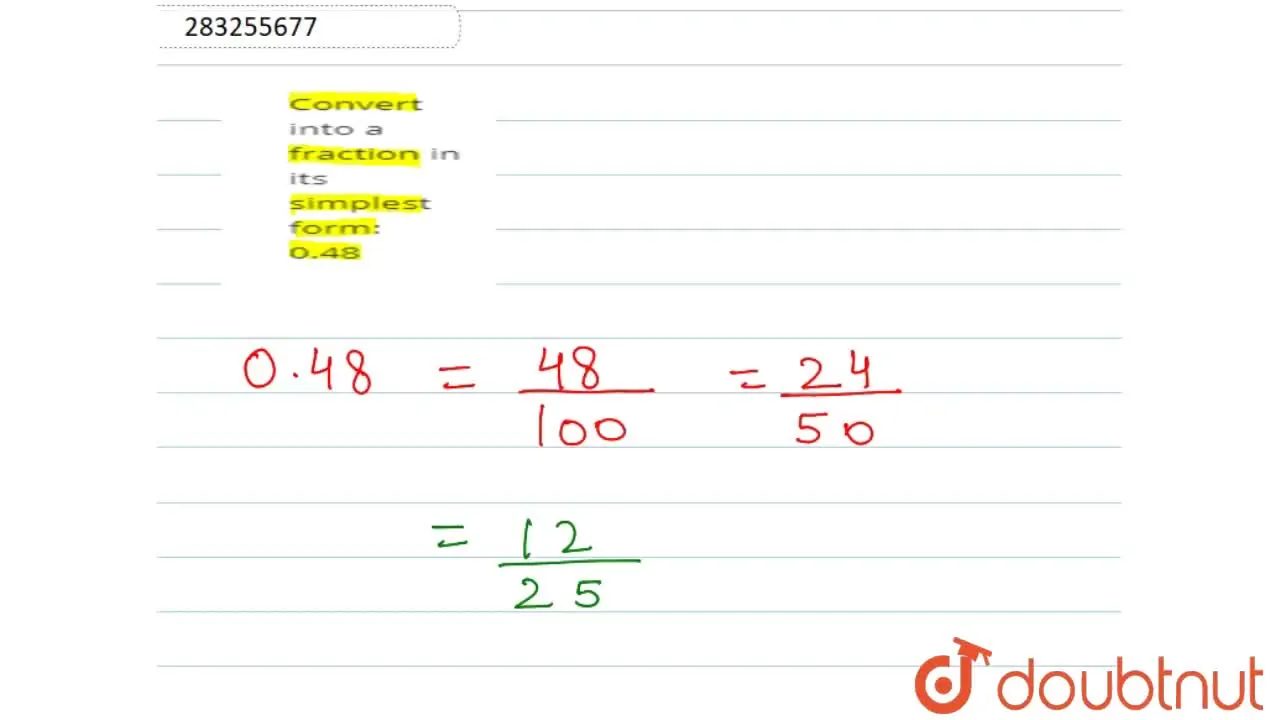 283255677
Convert
into a
fraction in
its
simplest
form:
0.48
0.48 = 48/100 = 24/50
= 12/25
doubtnut